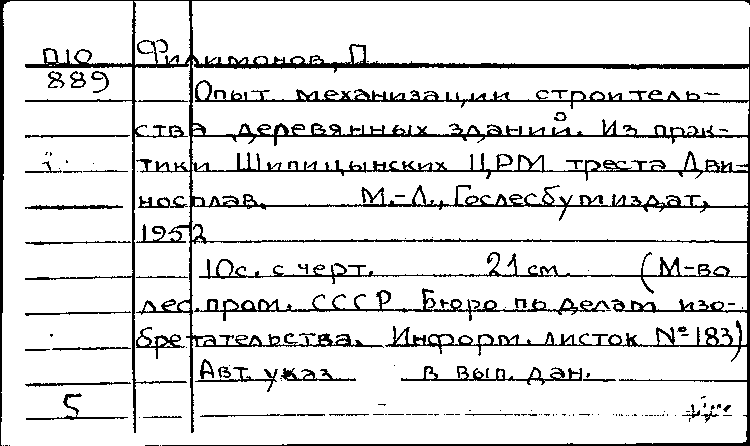 П10 Филимонов, П.
889
Опыт механизации строитель-
ства деревянных зданий. Из прак-
тики Шипицынских ЦРМ треста Дви-
носплав. М.-Л., Гослесбумиздат,
1952
10с. с черт. 21 см. (М-во
лес. пром. СССР Бюро по делам изо-
бретательства. Информ. листок №183)
Авт. указ в вып. дан.
5